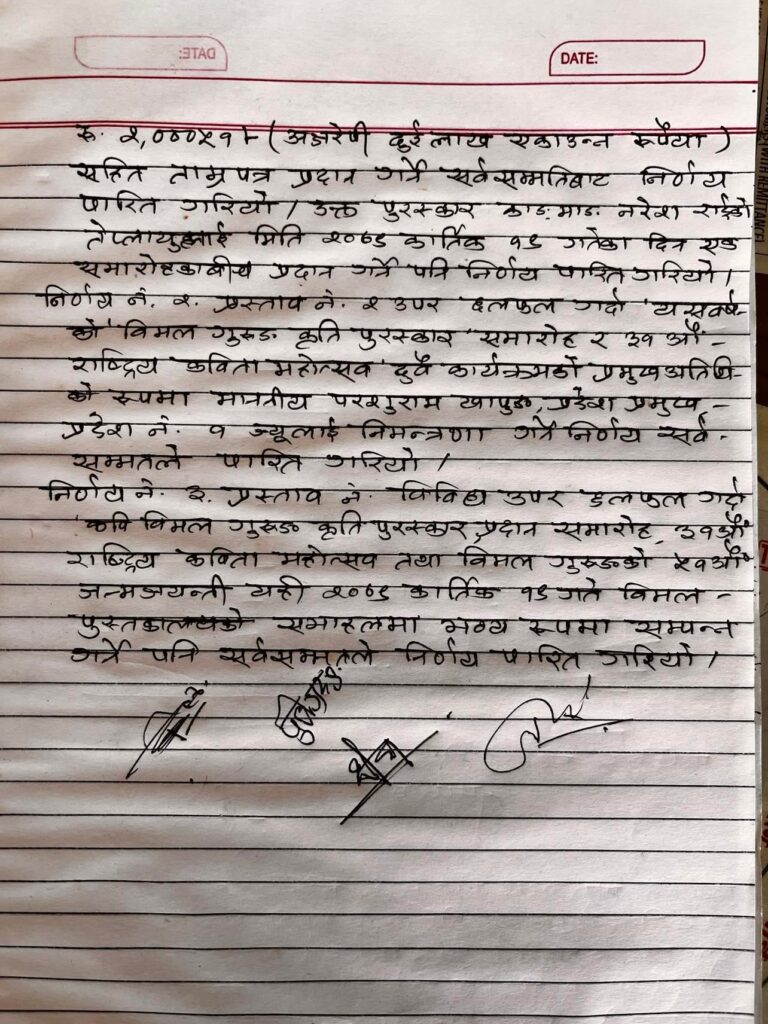 DATE:
DATE:
रु. २,०००५१।- (अक्षरेपी दुई लाख एकाउन्न रूपैया)
सहित ताम्रपत्र प्रदान गर्ने सर्वसम्मतिबाट निर्णय
पारित गरियो। उक्त पुरस्कार काङमाङ नरेश राईको
तेप्लायुङलाई मिति २०७८ कार्तिक १८ गतेका दिन एक
समारोहकाबीच प्रदान गर्ने पनि निर्णय पारित गरियो।
निर्णय नं. २. प्रस्ताव नं. २ उपर छलफल गर्दा 'यसवर्ष-
को' विमल गुरूङ कृति पुरस्कार 'समारोह र ३१ औं-
राष्ट्रिय कविता महोत्सव' दुवै कार्यक्रमको प्रमुख अतिथि-
को रूपमा माननीय परशुराम खापुङ, प्रदेश प्रमुख -
प्रदेश नं. १ ज्यूलाई निमन्त्रणा गर्ने निर्णय सर्व-
सम्मतले पारित गरियो।
निर्णय नं. ३. प्रस्ताव नं. विविध उपर छलफल गर्दा
'कवि विमल गुरूङ कृति पुरस्कार, प्रदान समारोह, ३१औं
राष्ट्रिय कविता महोत्सव तथा विमल गुरूङको ५१औं
जन्मजयन्ती यही २०७८ कार्तिक १८ गते विमल -
पुस्तकालयको सभाहलमा भव्य रूपमा सम्पन्न
गर्ने पनि सर्वसम्मतले निर्णय पारित गरियो।